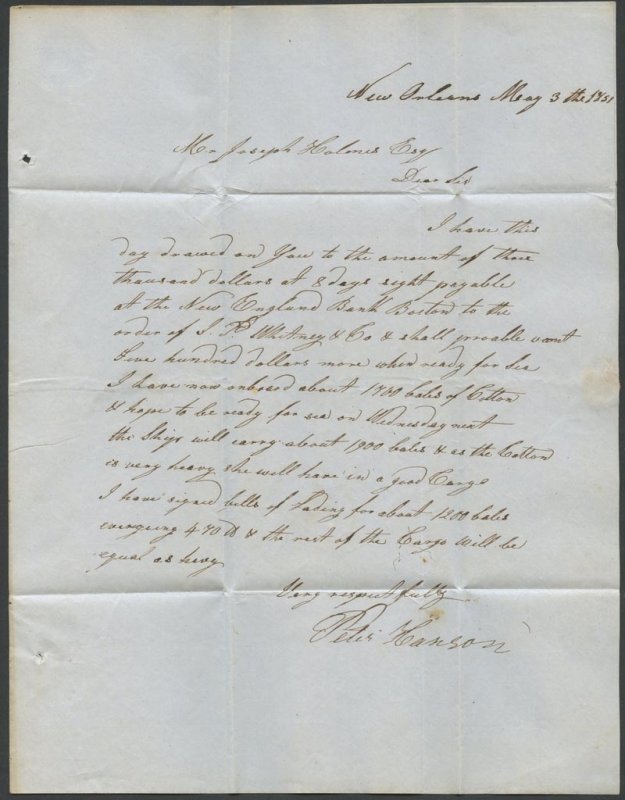 New Orleans May 3 the 1851
Mr Joseph Holmes Esq
Dear Sir
I have this
day drawed on You to the amount of three
thousand dollars at 8 days sight payable
at the New England Bank Boston to the
order of S. R Whitney & Co & shall proable want
Five hundred dollars more when ready for Sea
I have now onboard about 1700 bales of Cotton
& hope to be ready for sea on Wednesday next
the Ship will carry about 1900 bales & as the Cotton
is very heavy she will have in a good Cargo
I have signed bills of Lading for about 1200 bales
avergeing 470 lb & the rest of the Cargo will be
equal as hevy
Very respectfully
Peter Hanson